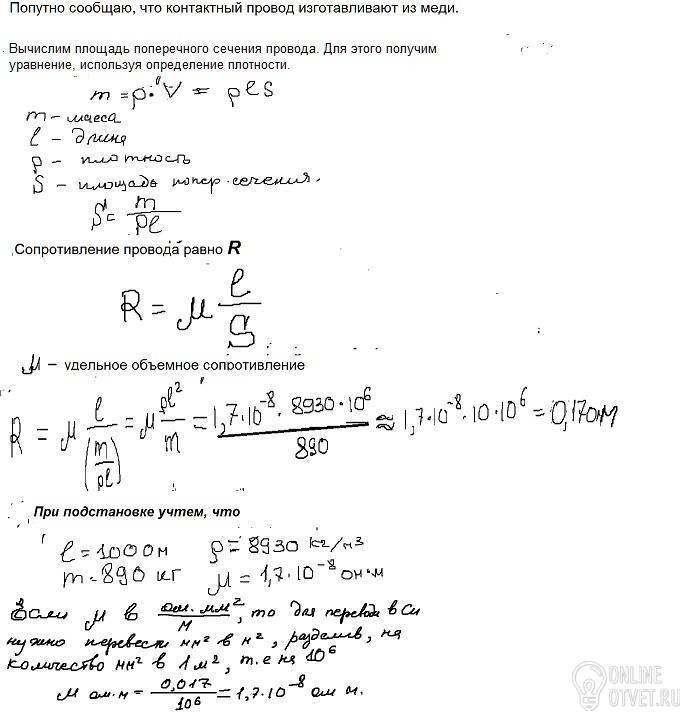 Попутно сообщаю, что контактный провод изготавливают из меди.
Вычислим площадь поперечного сечения провода. Для этого получим
уравнение, используя определение плотности.
m = ρ·V = ρℓS
m – масса
ℓ – длина
ρ – плотность
S – площадь попер. сечения.
S = m/ρℓ
Сопротивление провода равно R
R = μ ℓ/S
μ – удельное объемное сопротивление
R = μ ℓ/(m/ρℓ) = μ ρℓ²/m = 1,7·10⁻⁸·8930·10⁶/890 ≈ 1,7·10⁻⁸·10·10⁶ = 0,17 ом
При подстановке учтем, что
ℓ = 1000 м ρ = 8930 кг/м3
m = 890 кг μ = 1,7·10⁻⁸ ом·м
Если μ в ом·мм²/м, то для перевода в Си
нужно перевести мм² в м², разделив, на
количество мм² в 1 м², т.е на 10⁶
μ ом·м = 0,017/10⁶ = 1,7·10⁻⁸ ом м.
ONLINE
OTVET.RU